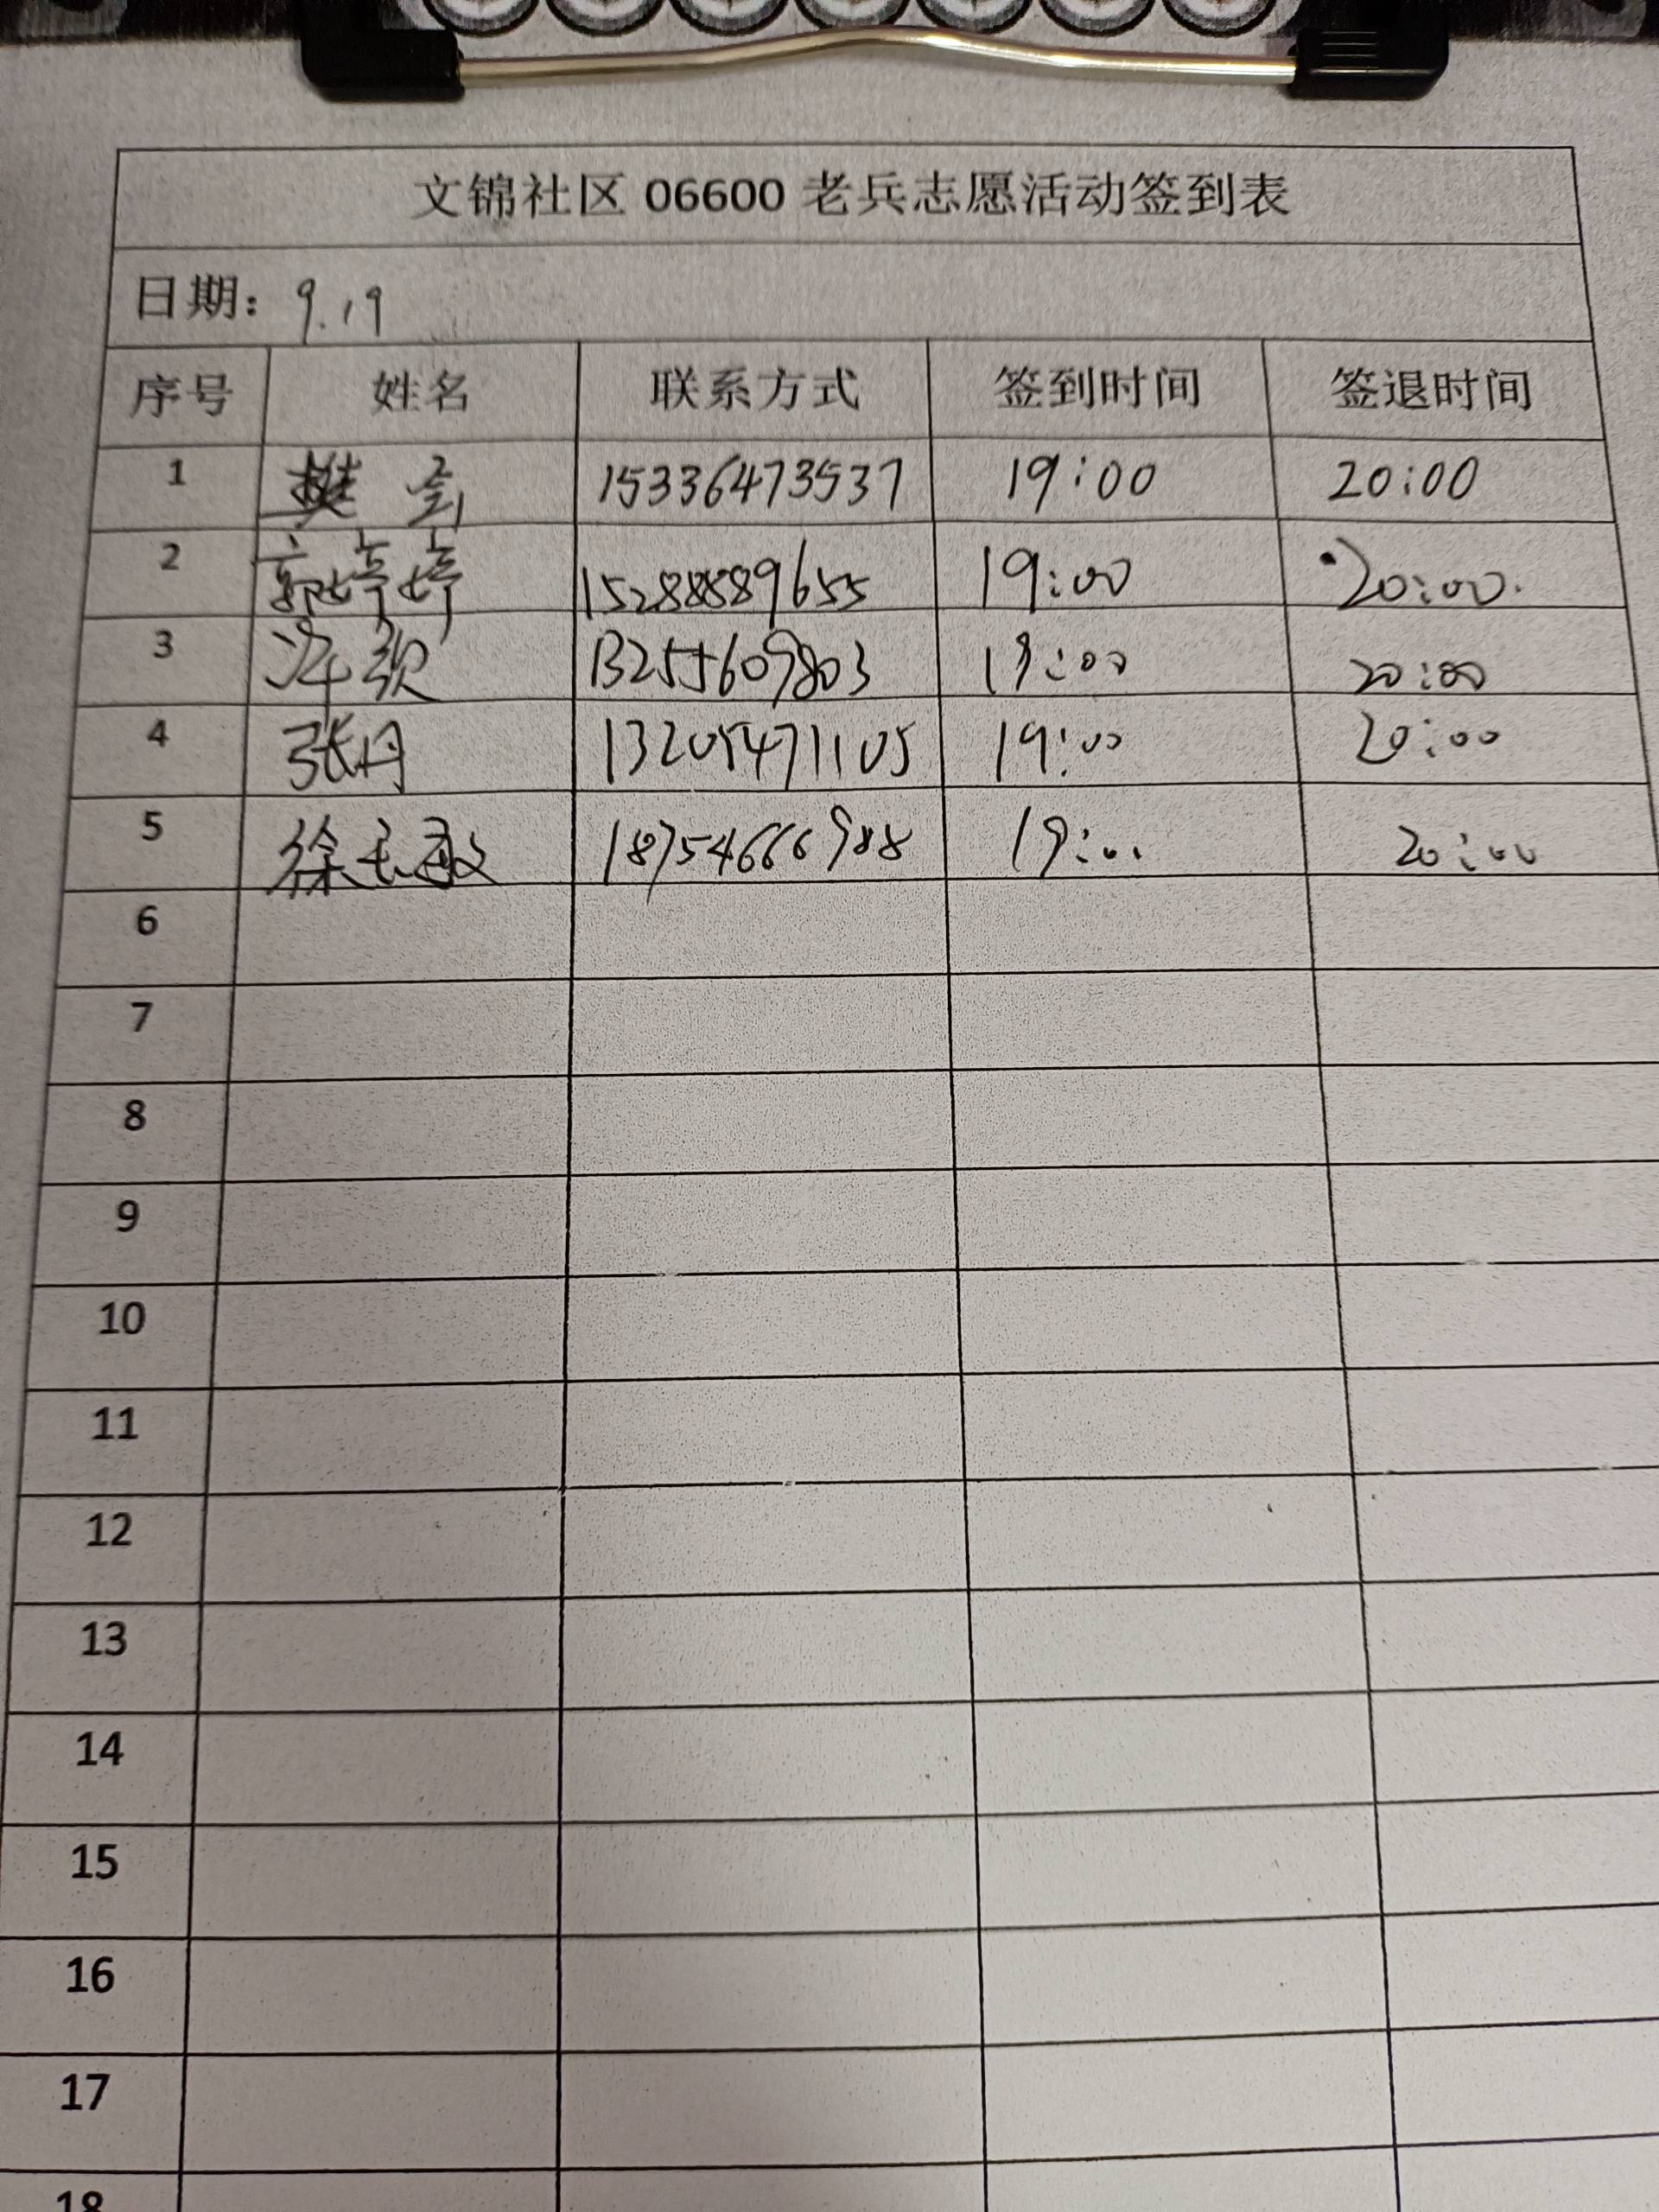 文锦社区 06600 老兵志愿活动签到表
日期: 9.19
序号 姓名 联系方式 签到时间 签退时间
1 樊 15336473537 19:00 20:00
2 郭婷婷 15288889655 19:00 20:00.
3 13255609803 19:00 20:00
4 张丹 13205471105 19:00 20:00
5 徐 敏 18754666988 19:00 20:00
6
7
8
9
10
11
12
13
14
15
16
17
18